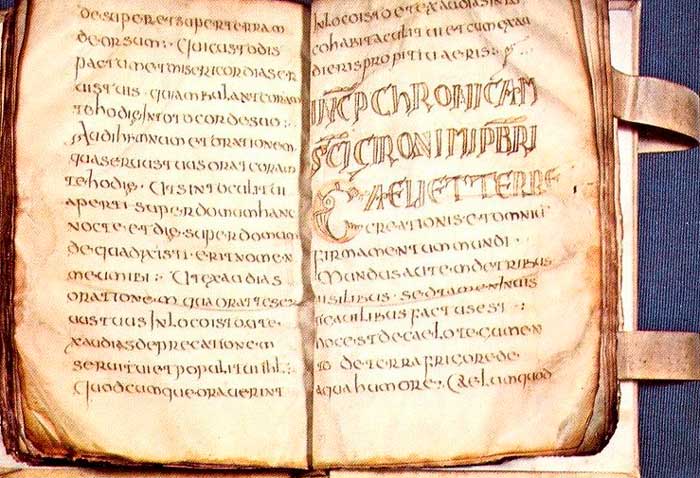 desuper etsuperterram
deorsum : Quicustodis
pactum etmisericordias er
uistuis quiambulant coram
tehodie Intoto cordesuo :
Audi hmnum et orationem
quaseruustuus orat coram
tehodie Utsintoculitui
aperti superdomumhanc
nocte et die superdomum
dequadxisti eritnomen
meumibi : Utexaudias
orationem quaoratteser
uustuus Inlocoisto utte
xaudiasdeprecationem
seruituietpopulituiihl :
Quodcumqueorauerint
Inlocoisto etexaudiesinlo
cohabitaculitui etcumexau
dieris propitiuseris :
INCP CHRONICAM
SCI CIRONIMI PBRI
CAELI ET TERRE
CREATIONIS etomniu
firmamentum mundi
Mundus detribus
uisilibus sedtamen inuis
factusest
hocestdecaelo tegumen
to deterra frigore de
aqua humore : Caelumquod